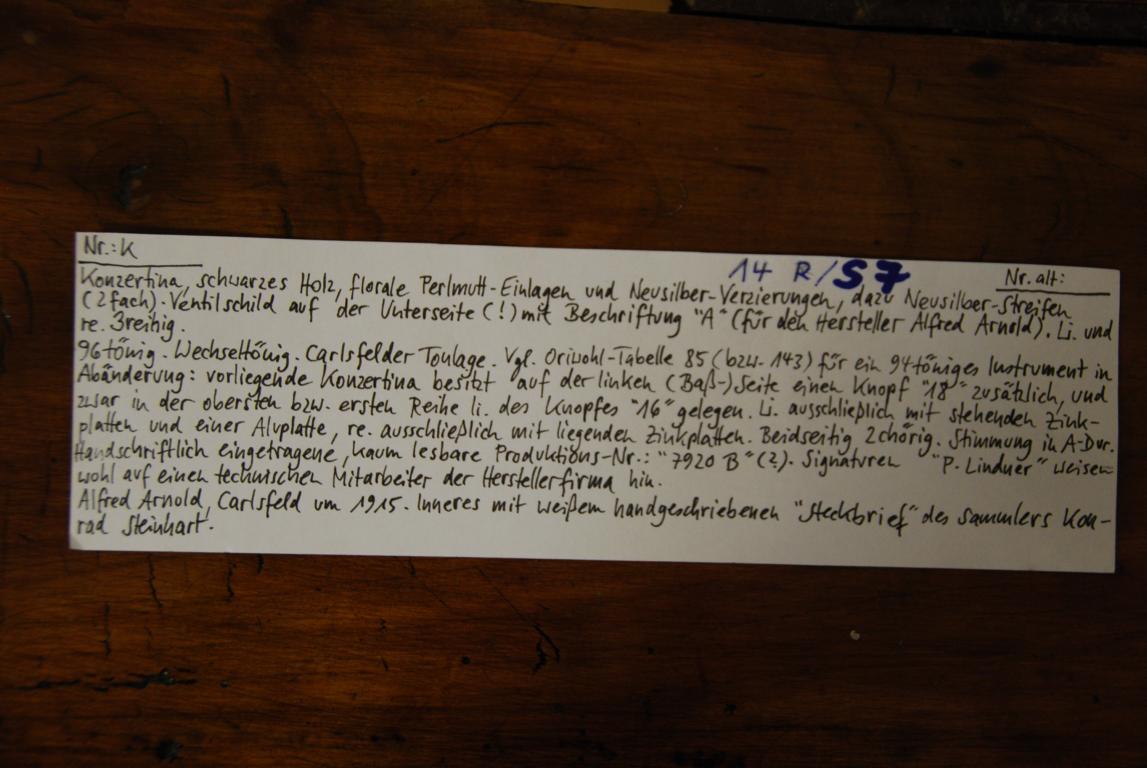 Nr.: K
14 R/S7
Nr. alt:
Konzertina, schwarzes Holz, florale Perlmutt-Einlagen und Neusilber-Verzierungen, dazu Neusilber-Streifen
(2fach). Ventilschild auf der Unterseite (!) mit Beschriftung "A" (für den Hersteller Alfred Arnold). Li. und
re. 3reihig.
96tönig. Wechseltönig. Carlsfelder Tonlage. Vgl. Oriwohl-Tabelle 85 (bzw. 143) für ein 94töniges Instrument in
Abänderung: vorliegende Konzertina besitzt auf der linken (Baß-)Seite einen Knopf "18" zusätzlich, und
zwar in der obersten bzw. ersten Reihe li. des Knopfes "16" gelegen. Li. ausschließlich mit stehenden Zink-
platten und einer Aluplatte, re. ausschließlich mit liegenden Zinkplatten. Beidseitig 2chörig. Stimmung in A-Dur.
Handschriftlich eingetragene, kaum lesbare Produktions-Nr.: "7920 B" (?). Signaturen "P. Lindner" weisen
wohl auf einen technischen Mitarbeiter der Herstellerfirma hin.
Alfred Arnold, Carlsfeld um 1915. Inneres mit weißem handgeschriebenen "Steckbrief" des Sammlers Kon-
rad Steinhart.